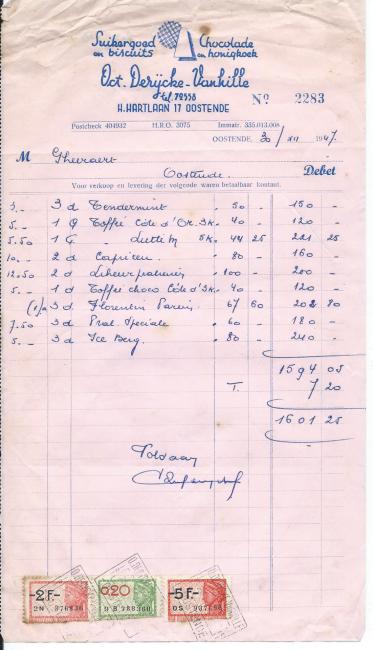 Suikergoed en biscuits
Chocolade en honigkoek
Oct. Derijcke-Vanhille
tel. 72558
H. HARTLAAN 17 OOSTENDE
No 2283
Postcheck 404932 H.R.O. 3075 Immatr. 335.013.008
OOSTENDE, 30/ 1947
M Gheeraert
Oostende. Debet
Voor verkoop en levering der volgende waren betaalbaar kontant.
3.- 3 d Tendermint . 50 - 150 -
5.- 1 Toffée Côte d'Or. 3K. 40 - 120 -
5.50 1 5K. 44 25 221 25
10.- 2 d . 80 - 160 -
12.50 2 d . 100 - 200 -
5.- 1 d Toffée choco Côte d' 3K. 40 - 120
3 d. Florentin 67 60 202 80
7.50 3 d Pral. Speciale . 60 - 180 -
5.- 3 d Ice Berg. . 80 - 240 -
1594 05
T. 7 20
1601 25
Voldaan
-2F.- 0.20 -5F.-